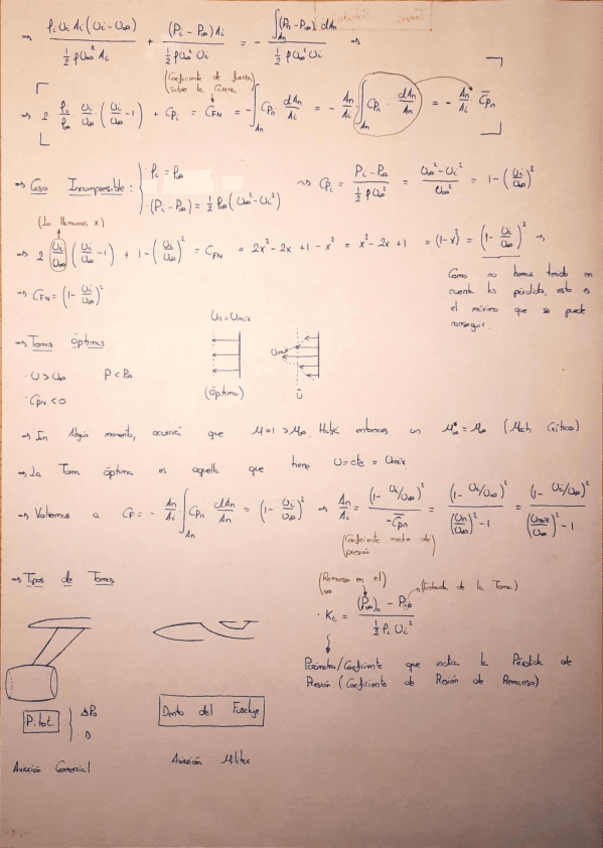 ⇒ ρi Ui Ai (Ui − U∞) / ½ ρ U∞² Ai + (Pi − P∞) Ai / ½ ρ U∞² Ui = − ∫An (Pn − P∞) dAn / ½ ρ U∞² Ui ⇒
(Coeficiente de fuerza sobre la Carena)
⇒ 2 · ρi/ρ∞ · Ui/U∞ (Ui/U∞ − 1) + CPi = CFN = − ∫An CPn dAn/Ai = − An/Ai ∫An CPn · dAn/An = − An/Ai · C̄Pn
⇒ Caso Incompresible: { ρi = ρ∞
· (Pi − P∞) = ½ ρ∞ (U∞² − Ui²)
⇝ CPi = Pi − P∞ / ½ ρ U∞² = U∞² − Ui² / U∞² = 1 − (Ui/U∞)²
(Lo llamamos x)
⇒ 2 Ui/U∞ (Ui/U∞ − 1) + 1 − (Ui/U∞)² = CFN = 2x² − 2x + 1 − x² = x² − 2x + 1 = (1 − x)² = (1 − Ui/U∞)² →
⇒ CFN = (1 − Ui/U∞)²
Como no hemos tenido en
cuenta las pérdidas, esto es
el máximo que se puede
conseguir.
Un = Umáx
⇒ Tomas Óptimas
· U > U∞ P < P∞
· CPn < 0
(Óptimo)
Umáx
Ū
⇒ En Algún momento, ocurrirá que M = 1 > M∞. Habrá entonces un M∞* = M∞ (Mach Crítico)
⇒ La Toma óptima es aquella que tiene U = cte = Umáx.
⇒ Volvemos a CF = − An/Ai ∫An CPn dAn/An = (1 − Ui/U∞)² ⇒ An/Ai = (1 − Ui/U∞)² / −C̄Pn = (1 − Ui/U∞)² / (Un/U∞)² − 1 = (1 − Ui/U∞)² / (Umáx/U∞)² − 1
(Coeficiente medio de presión)
⇒ Tipos de Tomas
(Remanso en el ∞)
(Entrada de la Toma)
· Ki = (P∞)o − Pio / ½ ρi Ui²
Parámetro/Coeficiente que indica la Pérdida de
Presión. (Coeficiente de Presión de Remanso)
Pitot
} ΔPo
· D
Dento del Fuselaje
Aviación Comercial
Aviación Militar